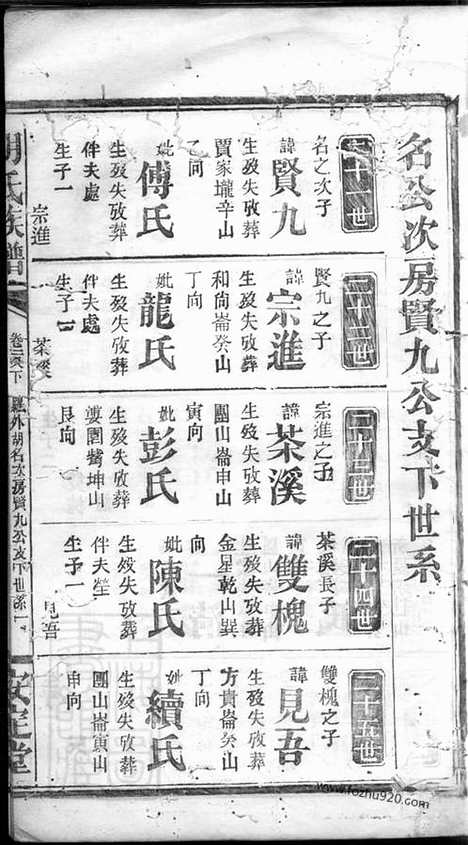 名公次房賢九公支下世系
十一世
名之次子
諱賢九
生歿失攷葬
賈家壠辛山
乙向
妣傅氏
生歿失攷葬
伴夫處
生子一
宗進
二十二世
賢九之子
諱宗進
生歿失攷葬
和尚崙癸山
丁向
妣龍氏
生歿失攷葬
伴夫處
生子
茶溪
二十三世
宗進之子
諱茶溪
生歿失攷葬
團山崙申山
寅向
妣彭氏
生歿失攷葬
坤山
艮向
二十四世
茶溪長子
諱雙槐
生歿失攷葬
金星乾山巽
向
妣陳氏
生歿失攷葬
伴夫塋
生子一
見吾
二十五世
雙槐之子
諱見吾
生歿失攷葬
方貴崙癸山
丁向
妣續氏
生歿失攷葬
團山崙寅山
申向
胡氏族譜
卷二 下
外胡名次房賢九公支下世系一
安定堂
www.fozhu920.com